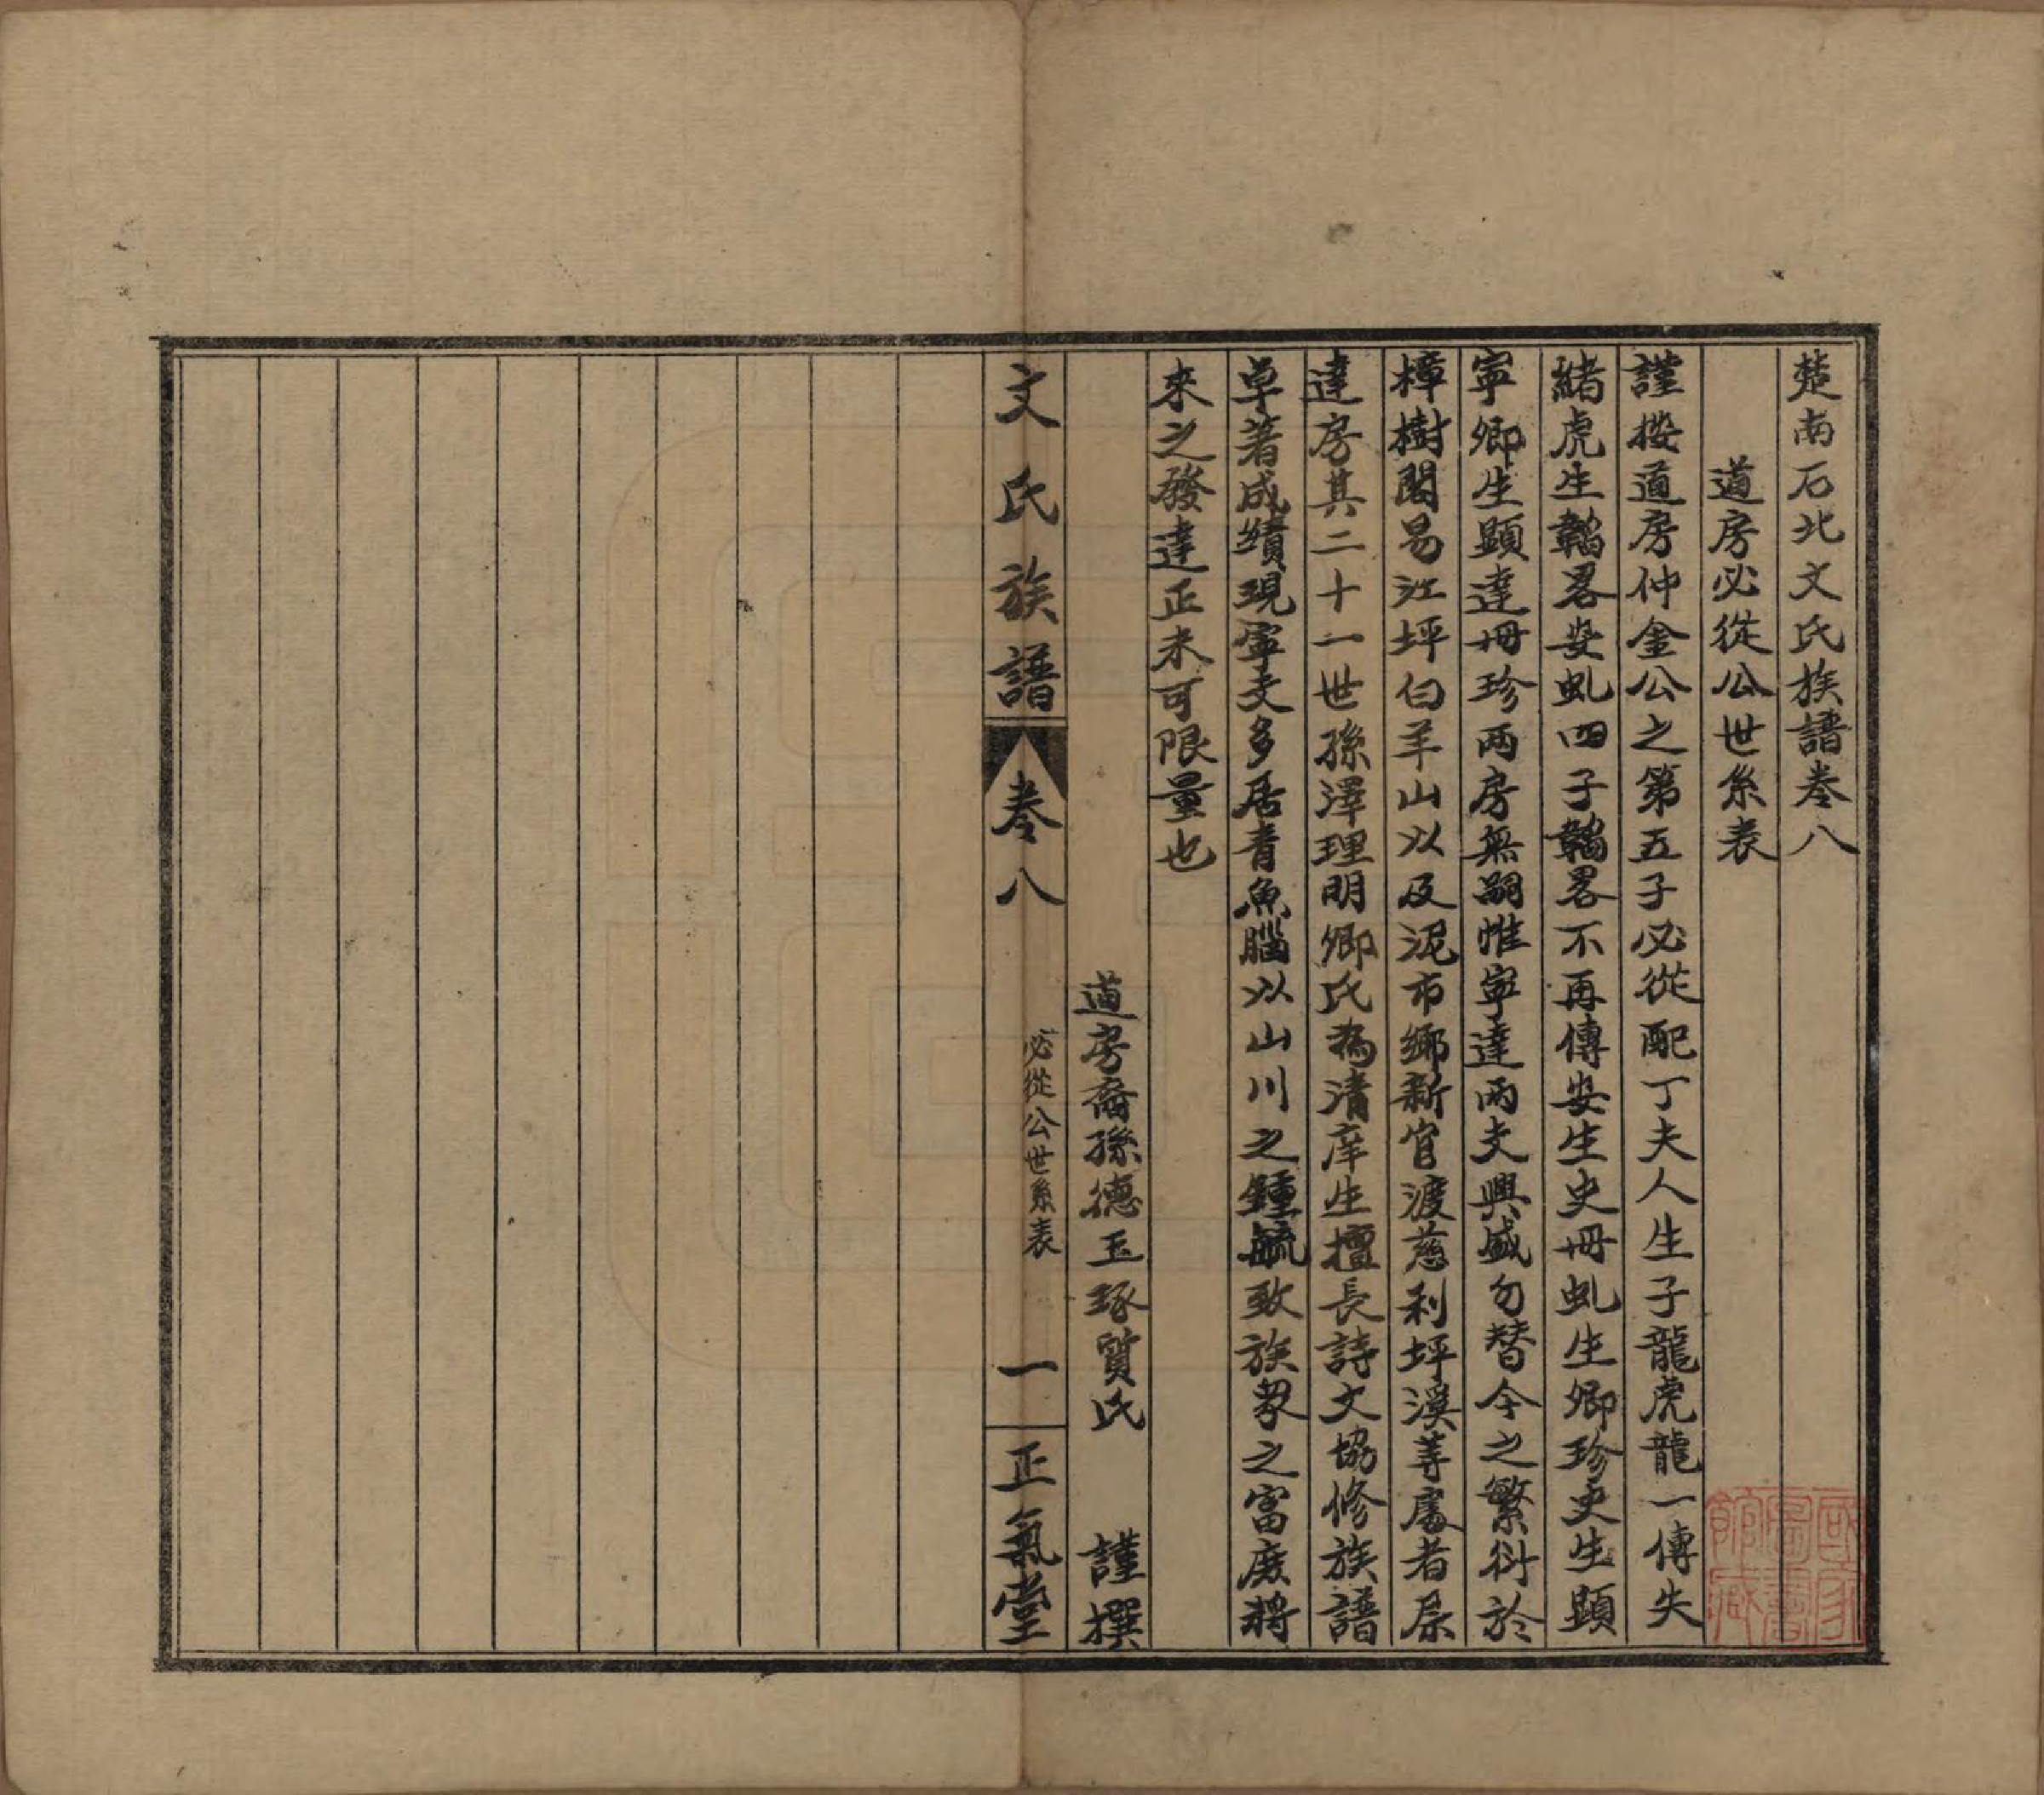 楚南石北文氏族譜卷八
道房必從公世系表
謹按道房仲金公之第五子必從配丁夫人生子龍虎龍一傳失
緒虎生韜畧安虬四子韜畧不再傳安生史冊虬生卿珍史生顕
寧卿生顕達冊珍兩房無嗣惟寧達兩支興盛勿替今之繁衍於
樟樹閣易江坪白羊山以及泥市鄉新官渡慈利坪溪等處者原
達房其二十一世孫澤理明卿氏為清庠生擅長詩文協修族譜
卓著成績現寧支多居青魚腦以山川之鍾毓致族衆之富庶將
來之發達正未可限量也
道房裔孫德玉琢質氏 謹撰
文氏族譜 卷八 必從公世系表 一 正氣堂
國家圖書館藏